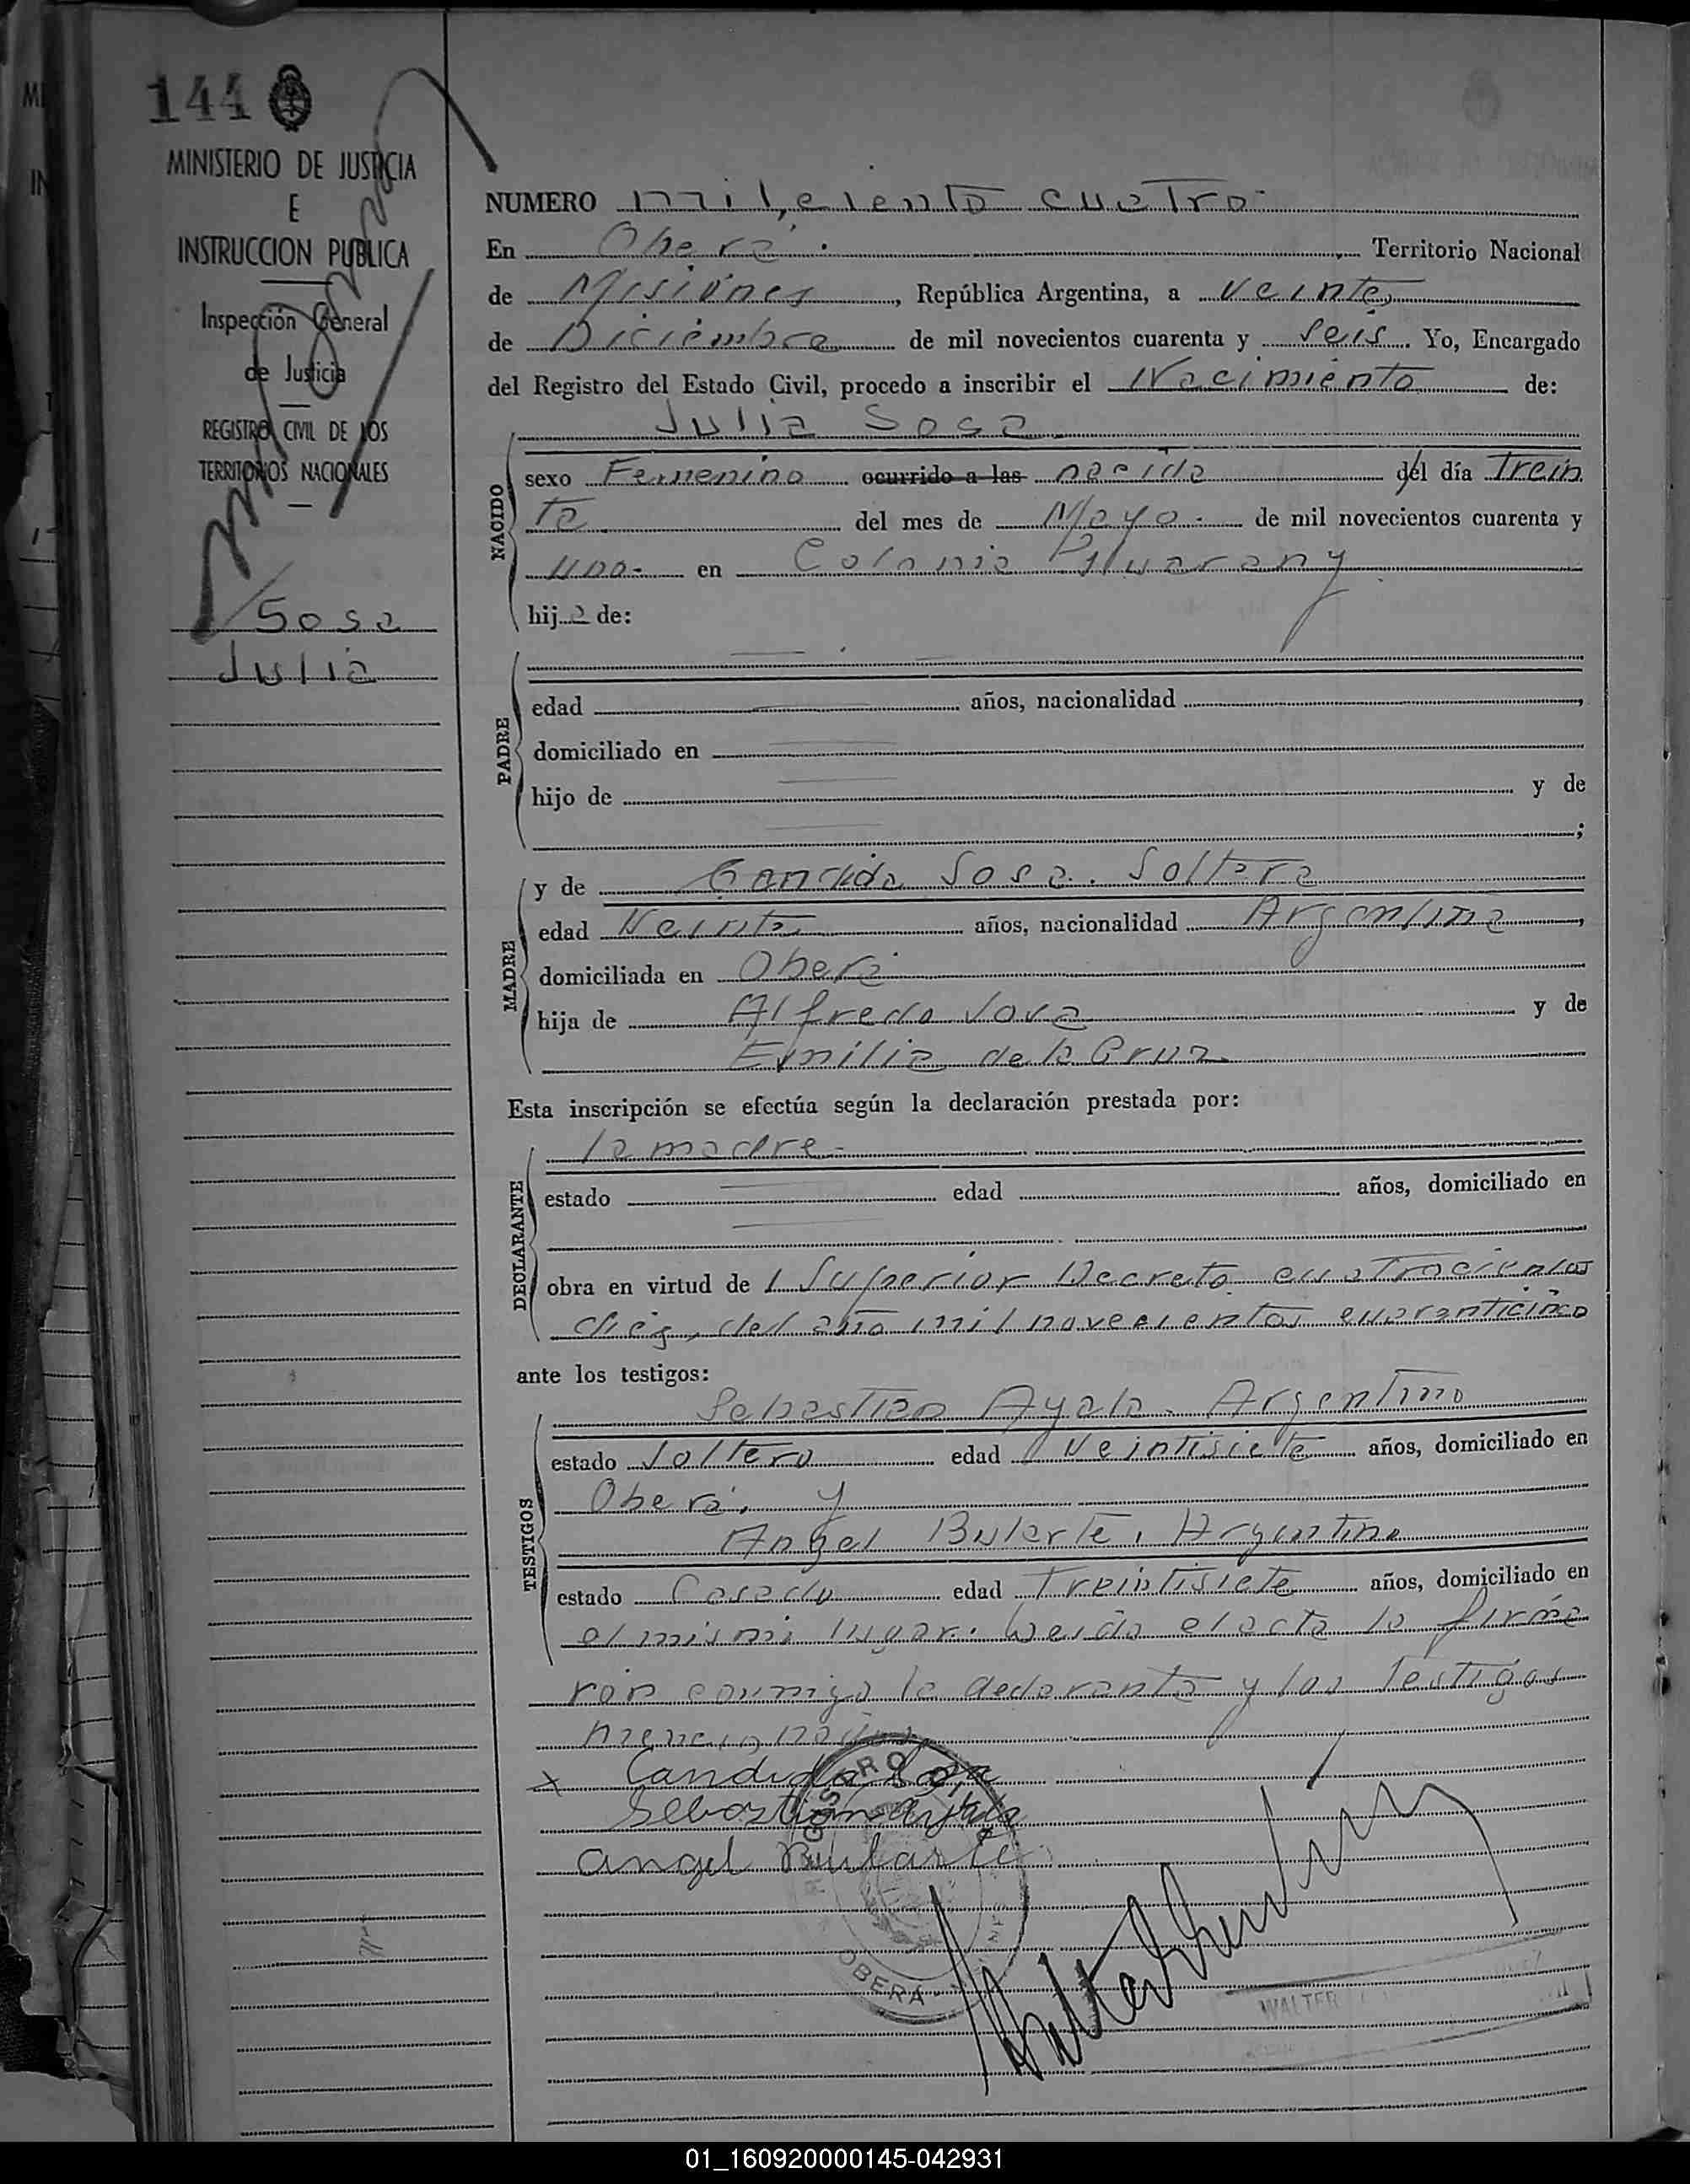 144
MINISTERIO DE JUSTICIA
E
INSTRUCCION PUBLICA
Inspección General
de Justicia
REGISTRO CIVIL DE LOS
TERRITORIOS NACIONALES
Sosa
Julia
NUMERO mil, ciento cuatro
En Oberá. Territorio Nacional
de Misiones, República Argentina, a veinte,
de Diciembre de mil novecientos cuarenta y seis. Yo, Encargado
del Registro del Estado Civil, procedo a inscribir el Nacimiento de:
Julia Sosa
NACIDO
sexo Femenino ocurrido a las nacida del día Trein
ta del mes de Mayo. de mil novecientos cuarenta y
uno- en Colonia Guarany
hija de:
PADRE
edad años, nacionalidad
domiciliado en
hijo de y de
;
MADRE
y de Candida Sosa. Soltera
edad Veinte años, nacionalidad Argentina,
domiciliada en Oberá
hija de Alfredo Sosa y de
Emilia de la Cruz.
Esta inscripción se efectúa según la declaración prestada por:
la madre-
DECLARANTE
estado edad años, domiciliado en
obra en virtud del Superior Decreto cuatrocientos
diez, del año mil novecientos cuarenticinco
ante los testigos:
TESTIGOS
Sebastian Ayala. Argentino
estado soltero edad Veintisiete años, domiciliado en
Oberá, y
Angel Bularte, Argentino
estado Casado edad Treintisiete años, domiciliado en
el mismo lugar. Leida el acta la firma
ron conmigo la declarante y los Testigos
mencionados
x Candida Sosa
Sebastian Ayala
Angel Bularte
REGISTRO
OBERÁ
WALTER
01_160920000145-042931